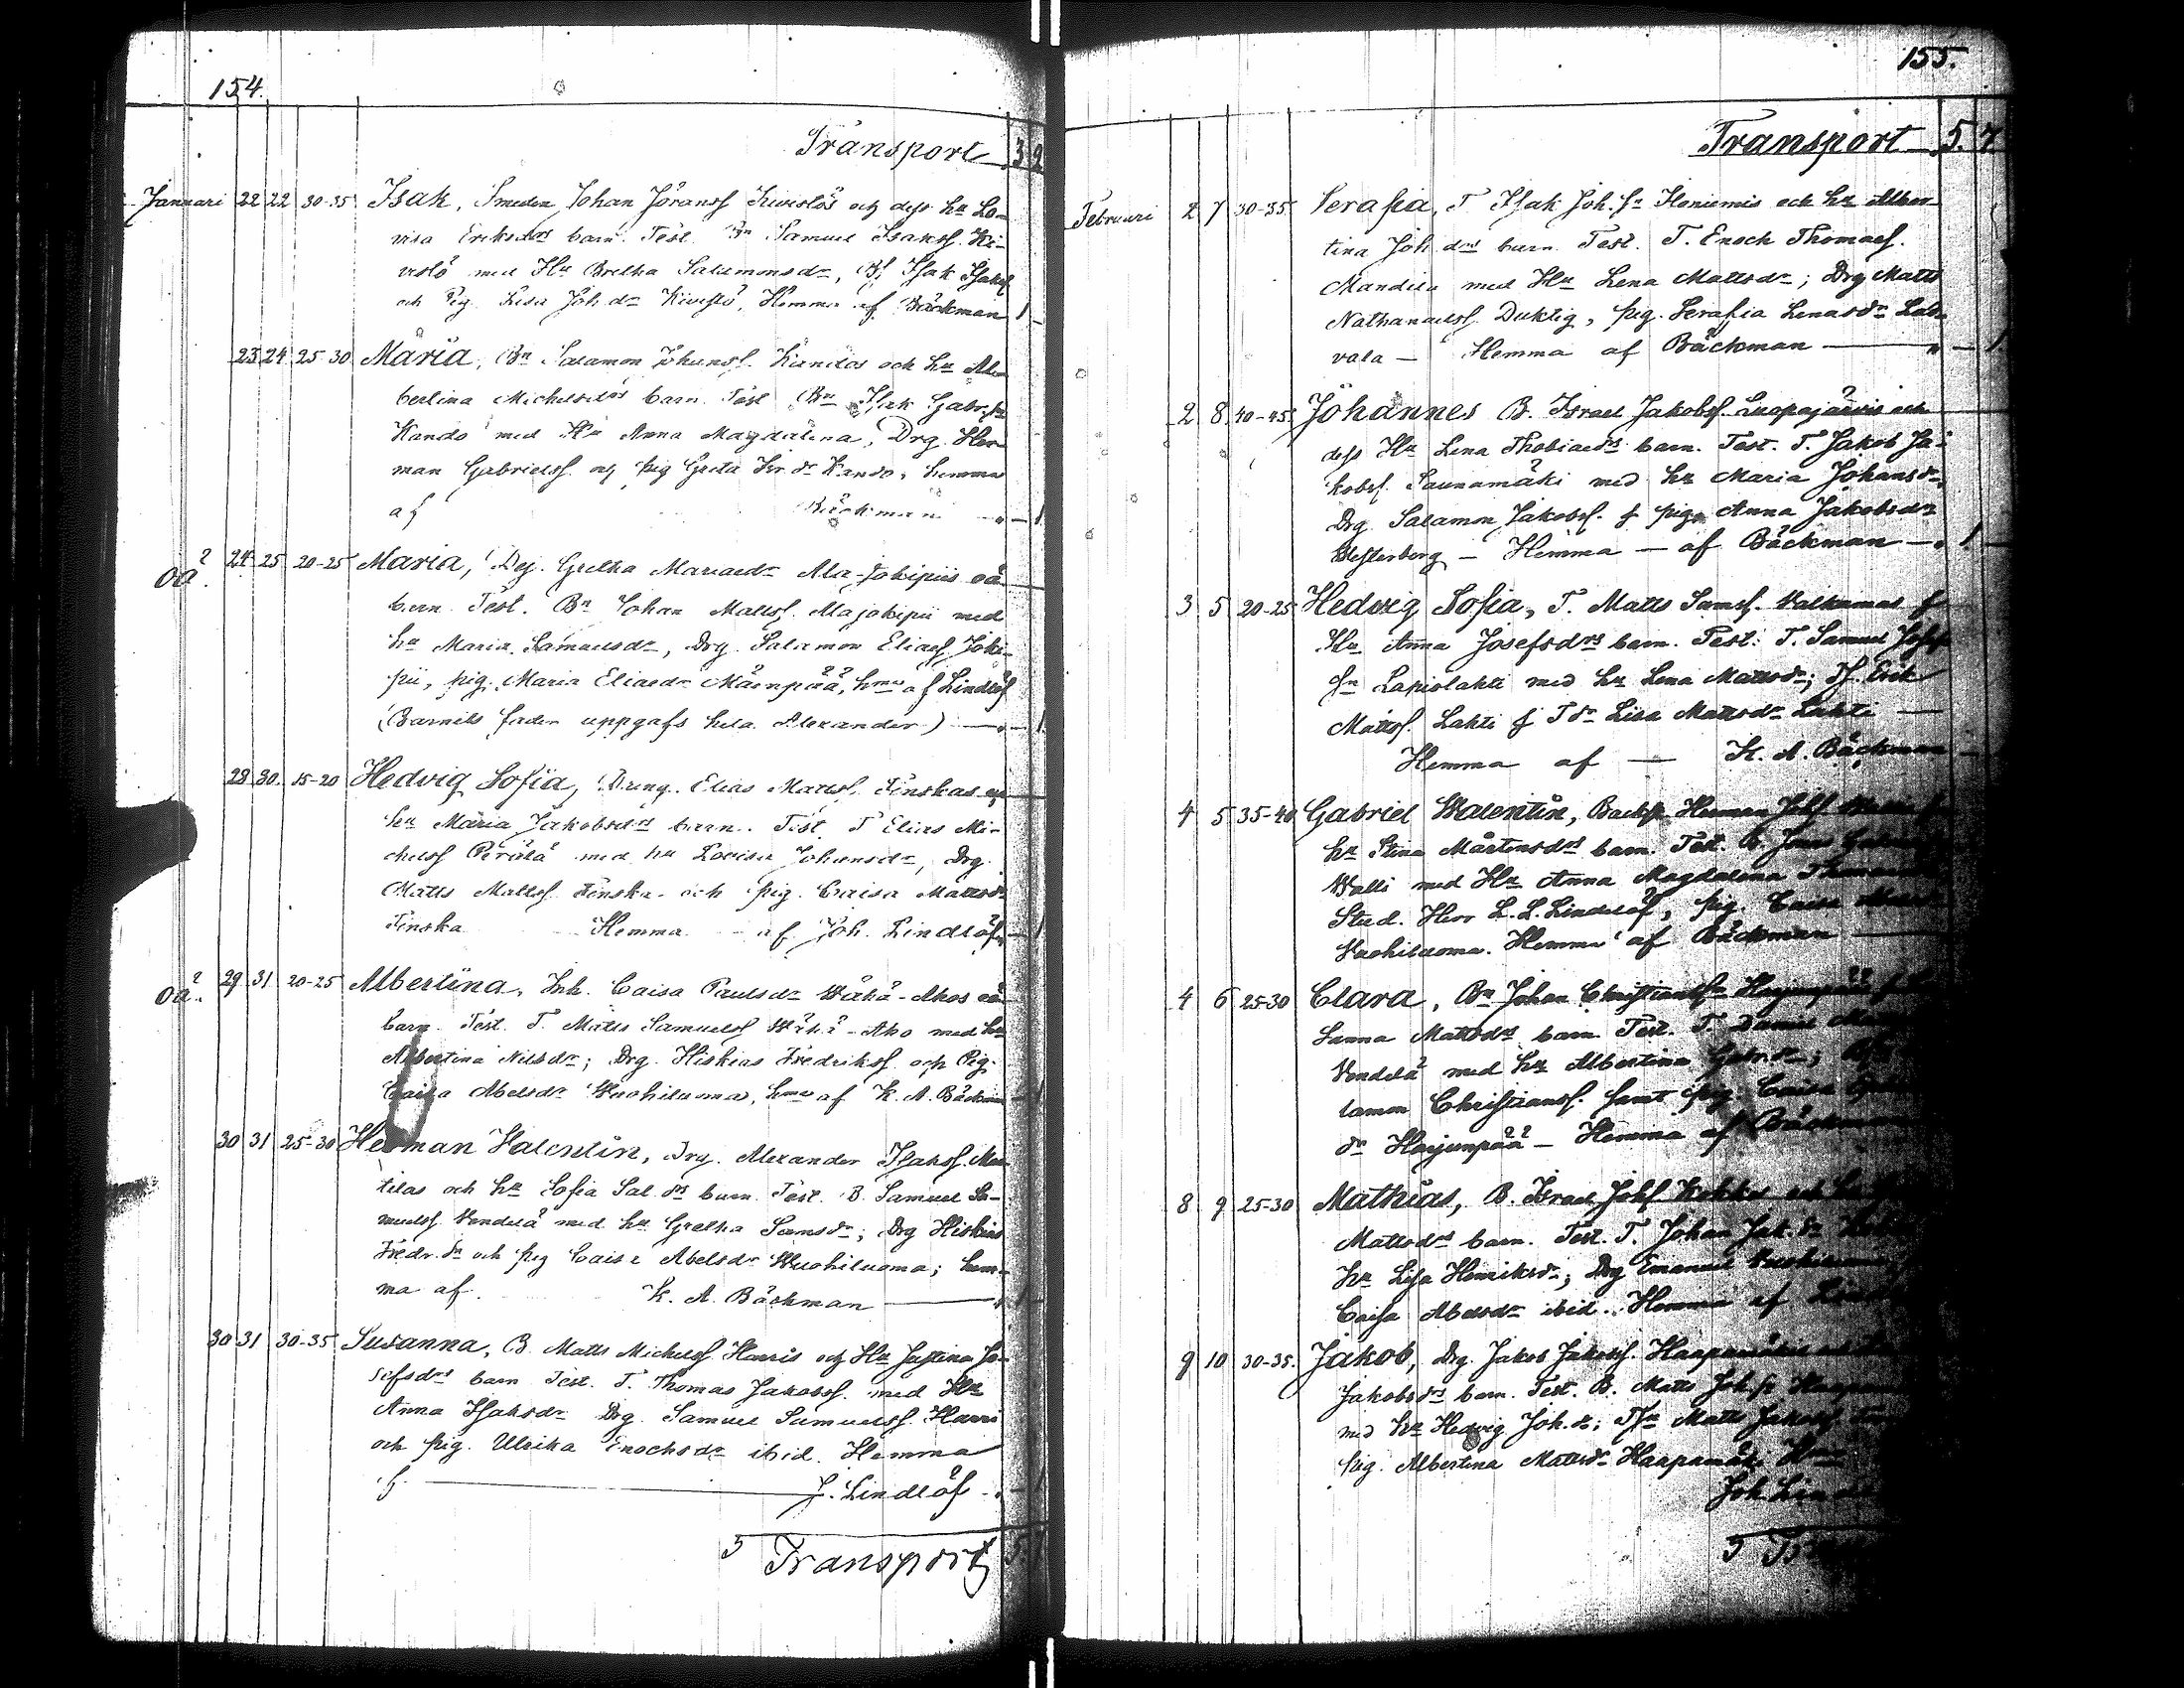 154.
Transport 3 2
Januari 22 22 30-35 Isak, Smeden Johan Jöranss Kivistös och dess hu Lo-
visa Eriksdrs barn. Test. Bn Samuel Isakss. Ki-
vistö med Hu Bretha Salomonsdr, Bs Isak Isakss
och Pig. Lisa Joh.dr Kivistö, Hemma af Bäckman 1
23 24 25-30 Maria, Bn Salamon Johanss. Kandos och hu Al-
bertina Michelsdrs barn. Test Bn Isak Gabr.sn
Kando med Hu Anna Magdalena, Drg. Her-
man Gabrielss. och pig Greta dr Kando, hemma
af Bäckman 1
oä. 24 25 20-25 Maria, Greta Mariaedr Ala-Jokipiis oä
barn. Test. Bn Johan Matss. Alajokipii med
hu Maria Samuelsdr, Drg. Salamon Eliass. Joki-
pii, pig. Maria Eliaedr Mäenpää, hma af Lindlöf
(Barnets fader uppgafs heta Alexander) 1
28 30. 15-20 Hedvig Sofia, Dreng. Elias Matss. Finskas och
hu Maria Jakobsdrs barn. Test. T Elias Mi-
chelss Perälä med hu Lovisa Johansdr, Drg.
Matts Mattss Finska och pig. Caisa Mattsdr
Finska Hemma af Joh. Lindlöf
oä. 29 31 20-25 Albertina, Inh. Caisa Paulsdr Wähä-Ahos oä
barn. Test. T. Matts Samuelss Wähä-Aho med hu
Albertina Nilsdr; Drg. Hiskias Fredrikss och Pig.
Caisa Abelsdr Wuohiluoma, hma af K. A. Bäckman
30 31 25-30 Herman Valentin, Drg. Alexander Isakss. Mat-
tilas och hu Sofia Sal.drs barn. Test. B. Samuel Sa-
muelss Vendelä med hu Gretha Samsdr; Drg Hiskias
Fredr.sn och pig Caisa Abelsdr Wuohiluoma; hem-
ma af. K. A. Bäckman
30 31 30-35 Susanna, B. Matts Michelss Harris och Hu Justina Jo-
sefsdrs barn Test. T. Thomas Jakobss. med Hu
Anna Isaksdr Drg. Samuel Samuelss. Harri
och pig. Ulrika Enochsdr ibid. Hemma
af J. Lindlöf
Transport
155.
Transport 5. 7.
Februari 2 7 30-35 Serafia, T Isak Joh.sn Heniemis och hu Alber-
tina Joh.drs barn Test. T. Enoch Thomass.
Mandila med Hu Lena Mattsdr; Drg Matts
Nathanaelss. Duktig, pig. Serafia Lenasdr
vala — Hemma af Bäckman 1
2 8 40-45 Johannes B. Israel Jakobss. Luopajärvis och
dess Hu Lena Thobiaedrs barn. Test. T. Jakob Ja-
kobss. Saunamäki med hu Maria Johansdr,
Drg. Salamon Jakobss. f pig. Anna Jakobsdr
Westerberg — Hemma — af Bäckman — 1
3 5 20-25 Hedvig Sofia, T. Matts Samss. Valkamas f
Hu Anna Josefsdrs barn. Test: T. Samuel Josef
sn Lapiolahti med hu Lena Mattsdr; Ts. Erik
Matss. Lahti f Tdr Lisa Mattsdr Lahti —
Hemma af — K. A. Bäckman
4 5 35-40 Gabriel Walentin, Herman Johs
hu Stina Mårtensdrs barn. Test. B. Jonas
Walli med Hu Anna Magdalena
Stud. Herr L. L. Lindelöf, pig. Caisa
Wuohiluoma. Hemma af Bäckman
4 6 25-30 Clara, Bn Johan Christianssn Harjunpää
Sanna Mattsdrs barn Test. T. Daniel
Vendelä med hu Albertina Gabr.dr;
lamon Christianss. samt pig. Caisa
dr Harjunpää — Hemma af Bäckman
8 9 25-30 Mathias, B. Israel Johs Kokko och hu
Mattsdrs barn. Test. T. Johan Jak.sn
hu Lisa Henriksdr; Drg Emanuel
Caisa Abelsdr ibid. Hemma af
9 10 30-35. Jakob, Drg. Jakob Jakobss. Haapamäkis
Jakobsdrs barn. Test. B. Matts Joh.sn
med hu Hedvig Joh.dr; Tsn Matts Jakobss
pig. Albertina Mattsdr Haapamäki
Joh. Lin